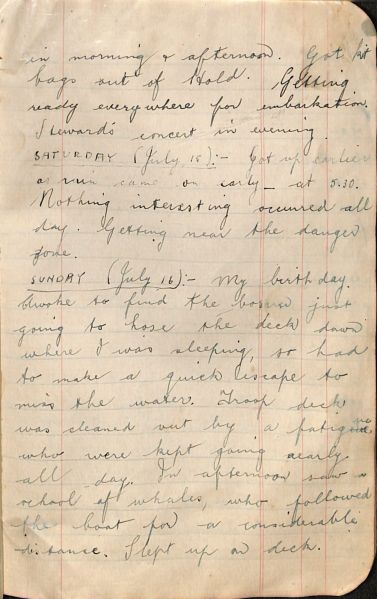 in morning & afternoon. Got kit
bags out of Hold. Getting
ready everywhere for embarkation.
Steward's concert in evening.
SATURDAY (July 15):- Got up earlier
as rain came on early - at 5.30.
Nothing interesting occurred all
day. Getting near the danger
zone.
SUNDAY (July 16):- My birthday.
Awoke to find the bosun just
going to hose the deck down
where I was sleeping, so had
to make a quick escape to
miss the water. Troop deck
was cleaned out by a fatigue
who were kept going nearly
all day. In afternoon saw a
school of whales, who followed
the boat for a considerable
distance. Slept up on deck.